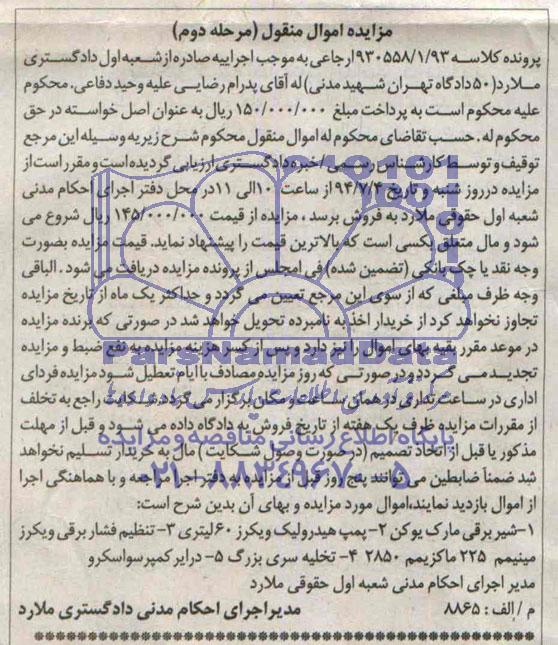 مزایده اموال منقول (مرحله دوم)
پرونده کلاسه ۹۳۰۵۵۸/۱/۹۳ ارجاعی به موجب اجراییه صادره از شعبه اول دادگستری
ملارد (۵۰ دادگاه تهران شهید مدنی) له آقای پدرام رضایی علیه وحید دفاعی، محکوم
علیه محکوم است به پرداخت مبلغ ۱۵۰/۰۰۰/۰۰۰ ریال به عنوان اصل خواسته در حق
محکوم له. حسب تقاضای محکوم له اموال منقول محکوم شرح زیر به وسیله این مرجع
توقیف و توسط کارشناس رسمی / خبره دادگستری ارزیابی گردیده است و مقرر است از
مزایده در روز شنبه و تاریخ ۹۴/۷/۴ از ساعت ۱۰ الی ۱۱ در محل دفتر اجرای احکام مدنی
شعبه اول حقوقی ملارد به فروش برسد، مزایده از قیمت ۱۴۵/۰۰۰/۰۰۰ ریال شروع می
شود و مال متعلق بکسی است که بالاترین قیمت را پیشنهاد نماید. قیمت مزایده بصورت
وجه نقد یا چک بانکی (تضمین شده) فی امجلس از پرونده مزایده دریافت می شود. الباقی
وجه ظرف مبلغی که از سوی این مرجع تعیین می گردد و حداکثر یک ماه از تاریخ مزایده
تجاوز نخواهد کرد از خریدار اخذ به نامبرده تحویل خواهد شد در صورتی که برنده مزایده
در موعد مقرر بقیه بهای اموال را نپردازد و پس از کسر هزینه مزایده به نفع ضبط و مزایده
تجدید می گردد و در صورتی که روز مزایده مصادف با ایام تعطیل شود مزایده فردای
اداری در ساعت اداری در همان ساعت و مکان برگزار می گردد. شکایت راجع به تخلف
از مقررات مزایده ظرف یک هفته از تاریخ فروش به دادگاه داده می شود و قبل از مهلت
مذکور یا قبل از اتخاذ تصمیم (در صورت وصول شکایت) مال به خریدار تسلیم نخواهد
شد ضمناً ضابطین می توانند پنج روز قبل از مزایده به دفتر اجرا مراجعه و با هماهنگی اجرا
از اموال بازدید نمایند، اموال مورد مزایده و بهای آن بدین شرح است:
۱-شیر برقی مارک یوکن ۲- پمپ هیدرولیک ویکرز ۶۰ لیتری ۳- تنظیم فشار برقی ویکرز
مینیمم ۲۲۵ ماکزیمم ۲۸۵۰ ۴- تخلیه سری بزرگ ۵- درایر کمپرسواسکرو
مدیر اجرای احکام مدنی شعبه اول حقوقی ملارد
م / الف: ۸۸۶۵ مدیر اجرای احکام مدنی دادگستری ملارد
ParsNamadData
پایگاه اطلاع رسانی مناقصه و مزایده
۰۲۱-۸۸۳۴۹۶۷۰-۵